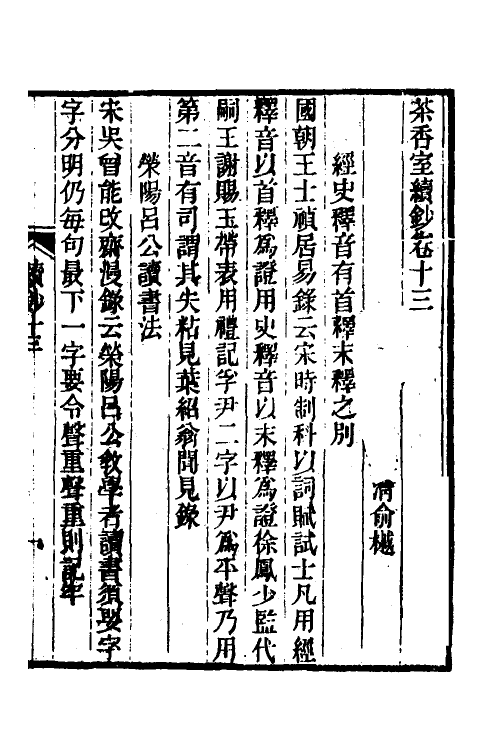 茶香室續鈔卷十三
淸俞樾
經史釋音有首釋末釋之別
國朝王士禎居易錄云宋時制科以詞賦試士凡用經
釋音以首釋爲證用史釋音以末釋爲證徐鳳少監代
嗣王謝賜玉帶表用禮記孚尹二字以尹爲平聲乃用
第二音有司謂其失粘見葉紹翁聞見錄
滎陽呂公讀書法
宋吳曾能改齋漫錄云滎陽呂公敎學者讀書須要字
字分明仍每句最下一字要令聲重聲重則記牢
續鈔十三